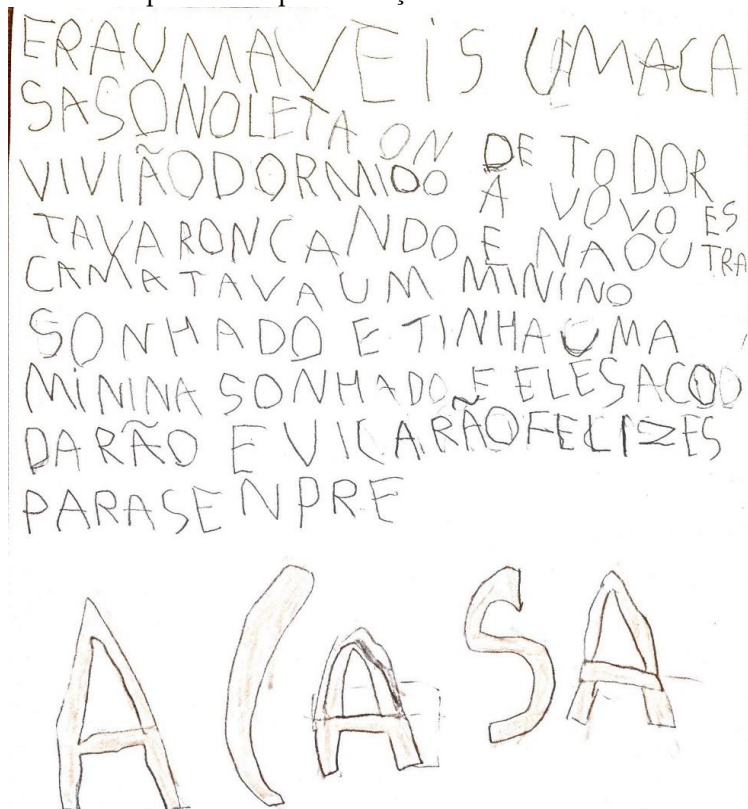 ERAUMAVEIS UMACA
SASONOLETA ON DE TODOR
VIVIÃODORMIDO A VOVO ES
TAVARONCANDO E NAOUTRA
CAMATAVAUM MININO
SONHADO E TINHAUMA
MININA SONHADO E ELES ACOD
DARÃO E VICARÃOFELIZES
PARASENPRE
A CASA